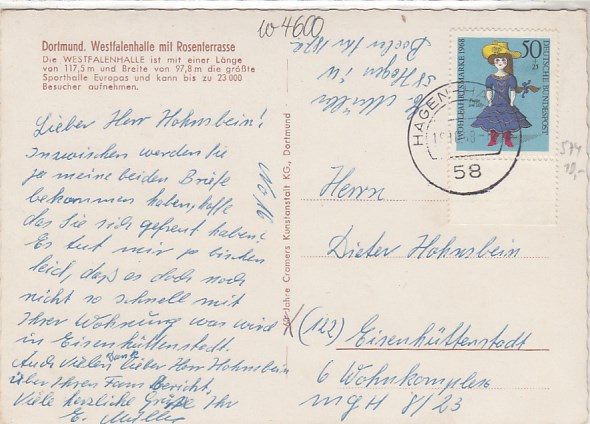 w 4600
Dortmund. Westfalenhalle mit Rosenterrasse
Die WESTFALENHALLE ist mit einer Länge
von 117,5 m und Breite von 97,8 m die größte
Sporthalle Europas und kann bis zu 23 000
Besucher aufnehmen.
Lieber Herr Hohnsbein!
Inzwischen werden Sie
ja meine beiden Briefe
bekommen haben, hoffe
das Sie sich gefreut haben.
Es tut mir so
leid, daß es doch noch
nicht so schnell mit
Ihrer Wohnung was wird
in Eisenhüttenstadt.
Auch Vielen Dank lieber Herr Hohnsbein
über Ihren Bericht.
Viele herzliche Grüße Ihr
E. Müller
No 16
Jahre Cramers Kunstanstalt KG., Dortmund
E. Müller
58 Hagen
50
+25
DEUTSCHE BUNDESPOST
WOHLFAHRTSMARKE 1968
HAGEN
58
574
10,-
Herrn
Dieter Hohnsbein
(122) Eisenhüttenstadt
6 Wohnkomplex
MGH 8/23